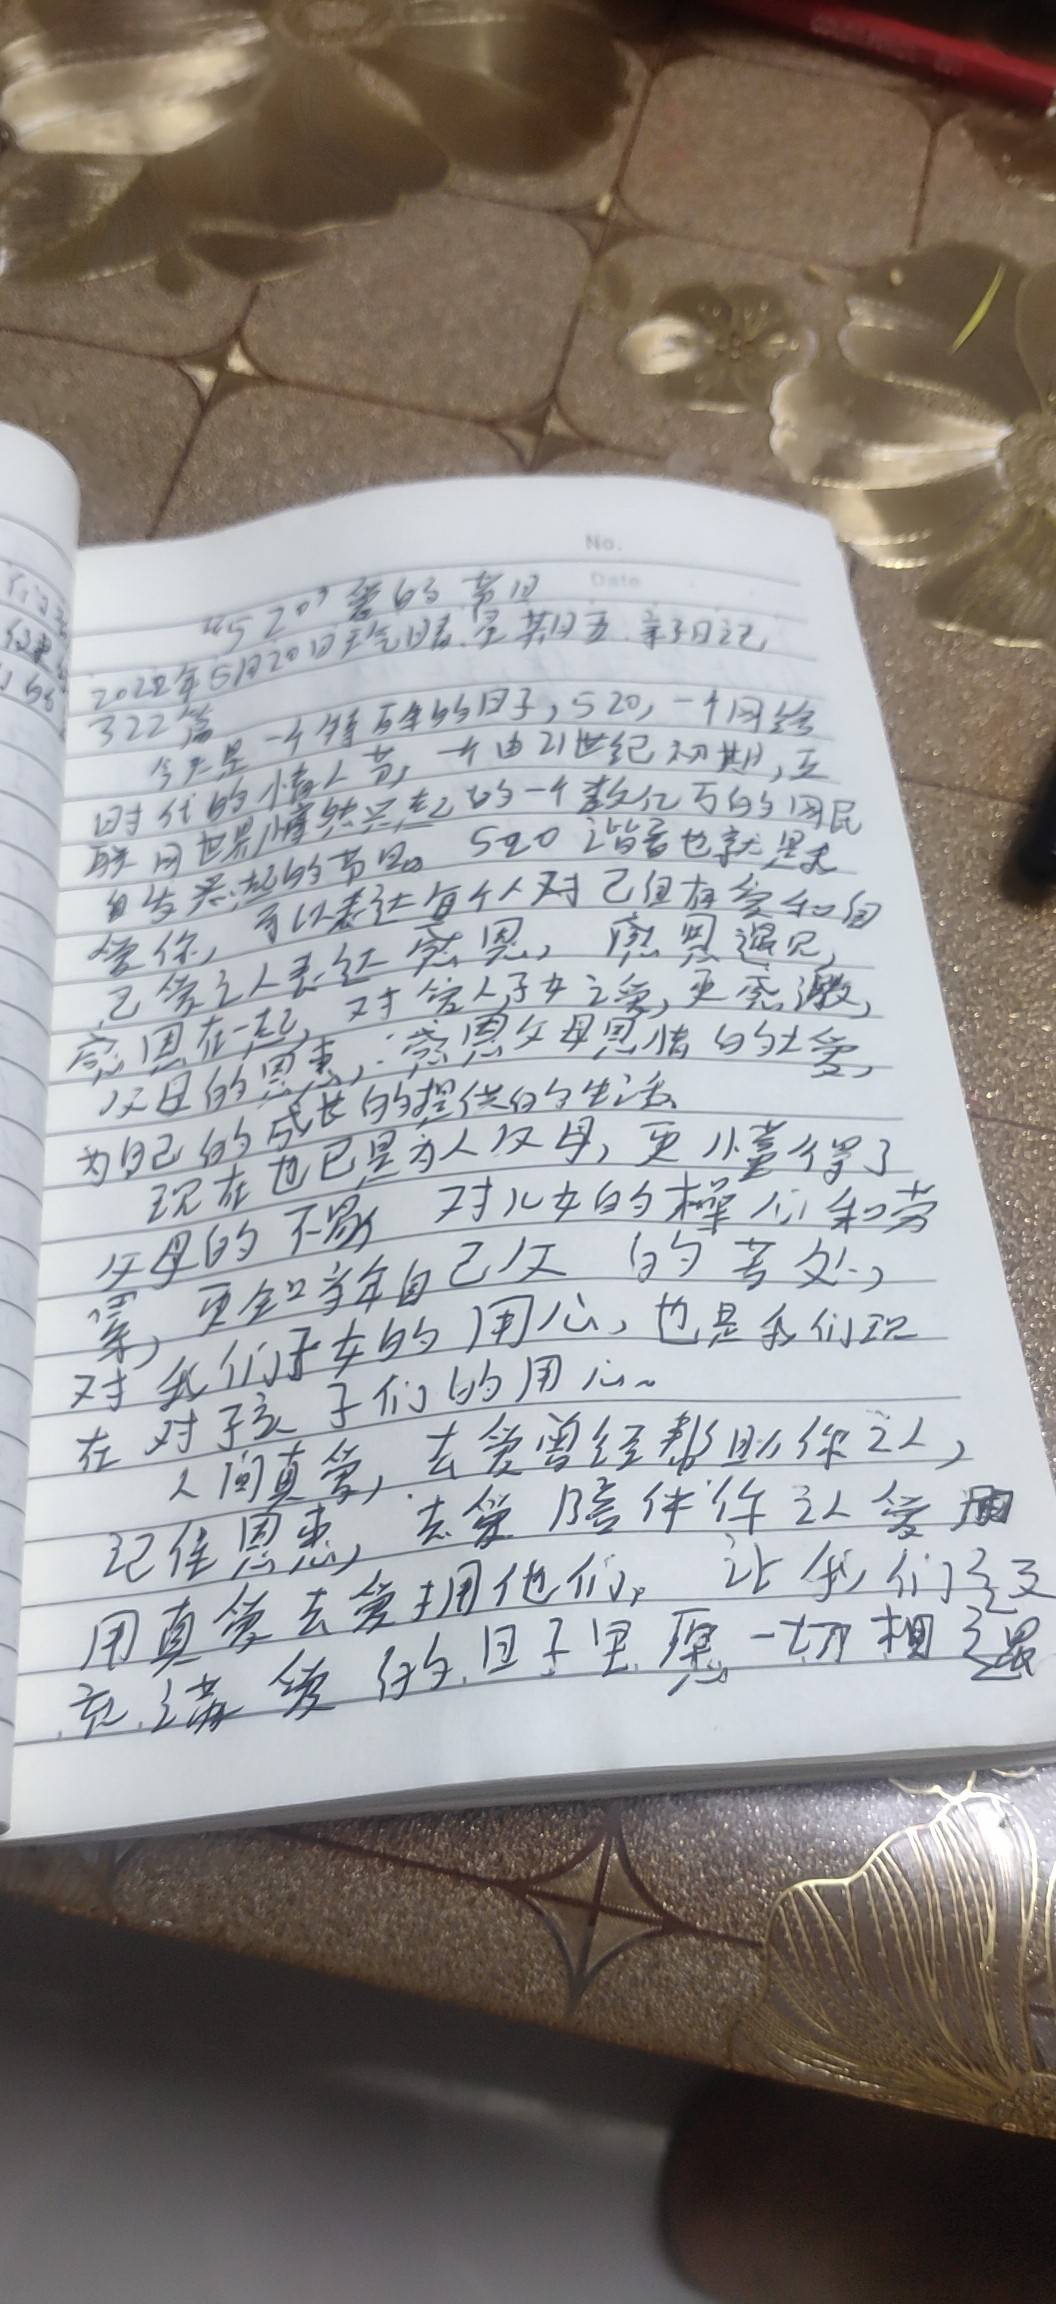 No.
Date
"520"爱的节日
2022年5月20日天气晴.星期五.亲子日记
322篇
今天是一个特别的日子,520,一个网络
时代的情人节,一个由21世纪初期,互
联网世界悄然兴起的一个数亿万的网民
自发兴起的节日。520谐音也就是我
爱你,可以表达每个人对己但有爱和自
己爱之人表达感恩,感恩遇见,
感恩在一起,对家人子女之爱,更感激,
父母的恩惠,感恩父母恩情的大爱,
为自己的成长的提供的生活
现在也已是为人父母,更懂得了
父母的不易 对儿女的操心和劳
累,更知当年自己父 的苦处,
对我们子女的用心,也是我们现
在对孩子们的用心。
人间真爱,去爱曾经帮助你之人,
记住恩惠,去爱陪伴你之人爱
用真爱去爱拥他们。让我们这
充满爱的日子里愿一切相遇